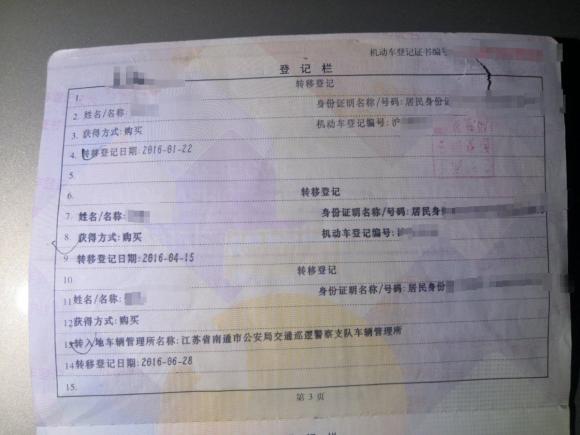 机动车登记证书编号
登 记 栏
1. 转移登记
2. 姓名/名称: 身份证明名称/号码:居民身份证
3. 获得方式:购买 机动车登记编号:沪
4. 转移登记日期:2016-01-22
5.
6. 转移登记
7. 姓名/名称: 身份证明名称/号码:居民身
8. 获得方式:购买 机动车登记编号:沪
9. 转移登记日期:2016-04-15
10. 转移登记
11. 姓名/名称: 身份证明名称/号码:居民身
12. 获得方式:购买
13. 转入地车辆管理所名称:江苏省南通市公安局交通巡逻警察支队车辆管理所
14. 转移登记日期:2016-06-28
15.
第 3 页